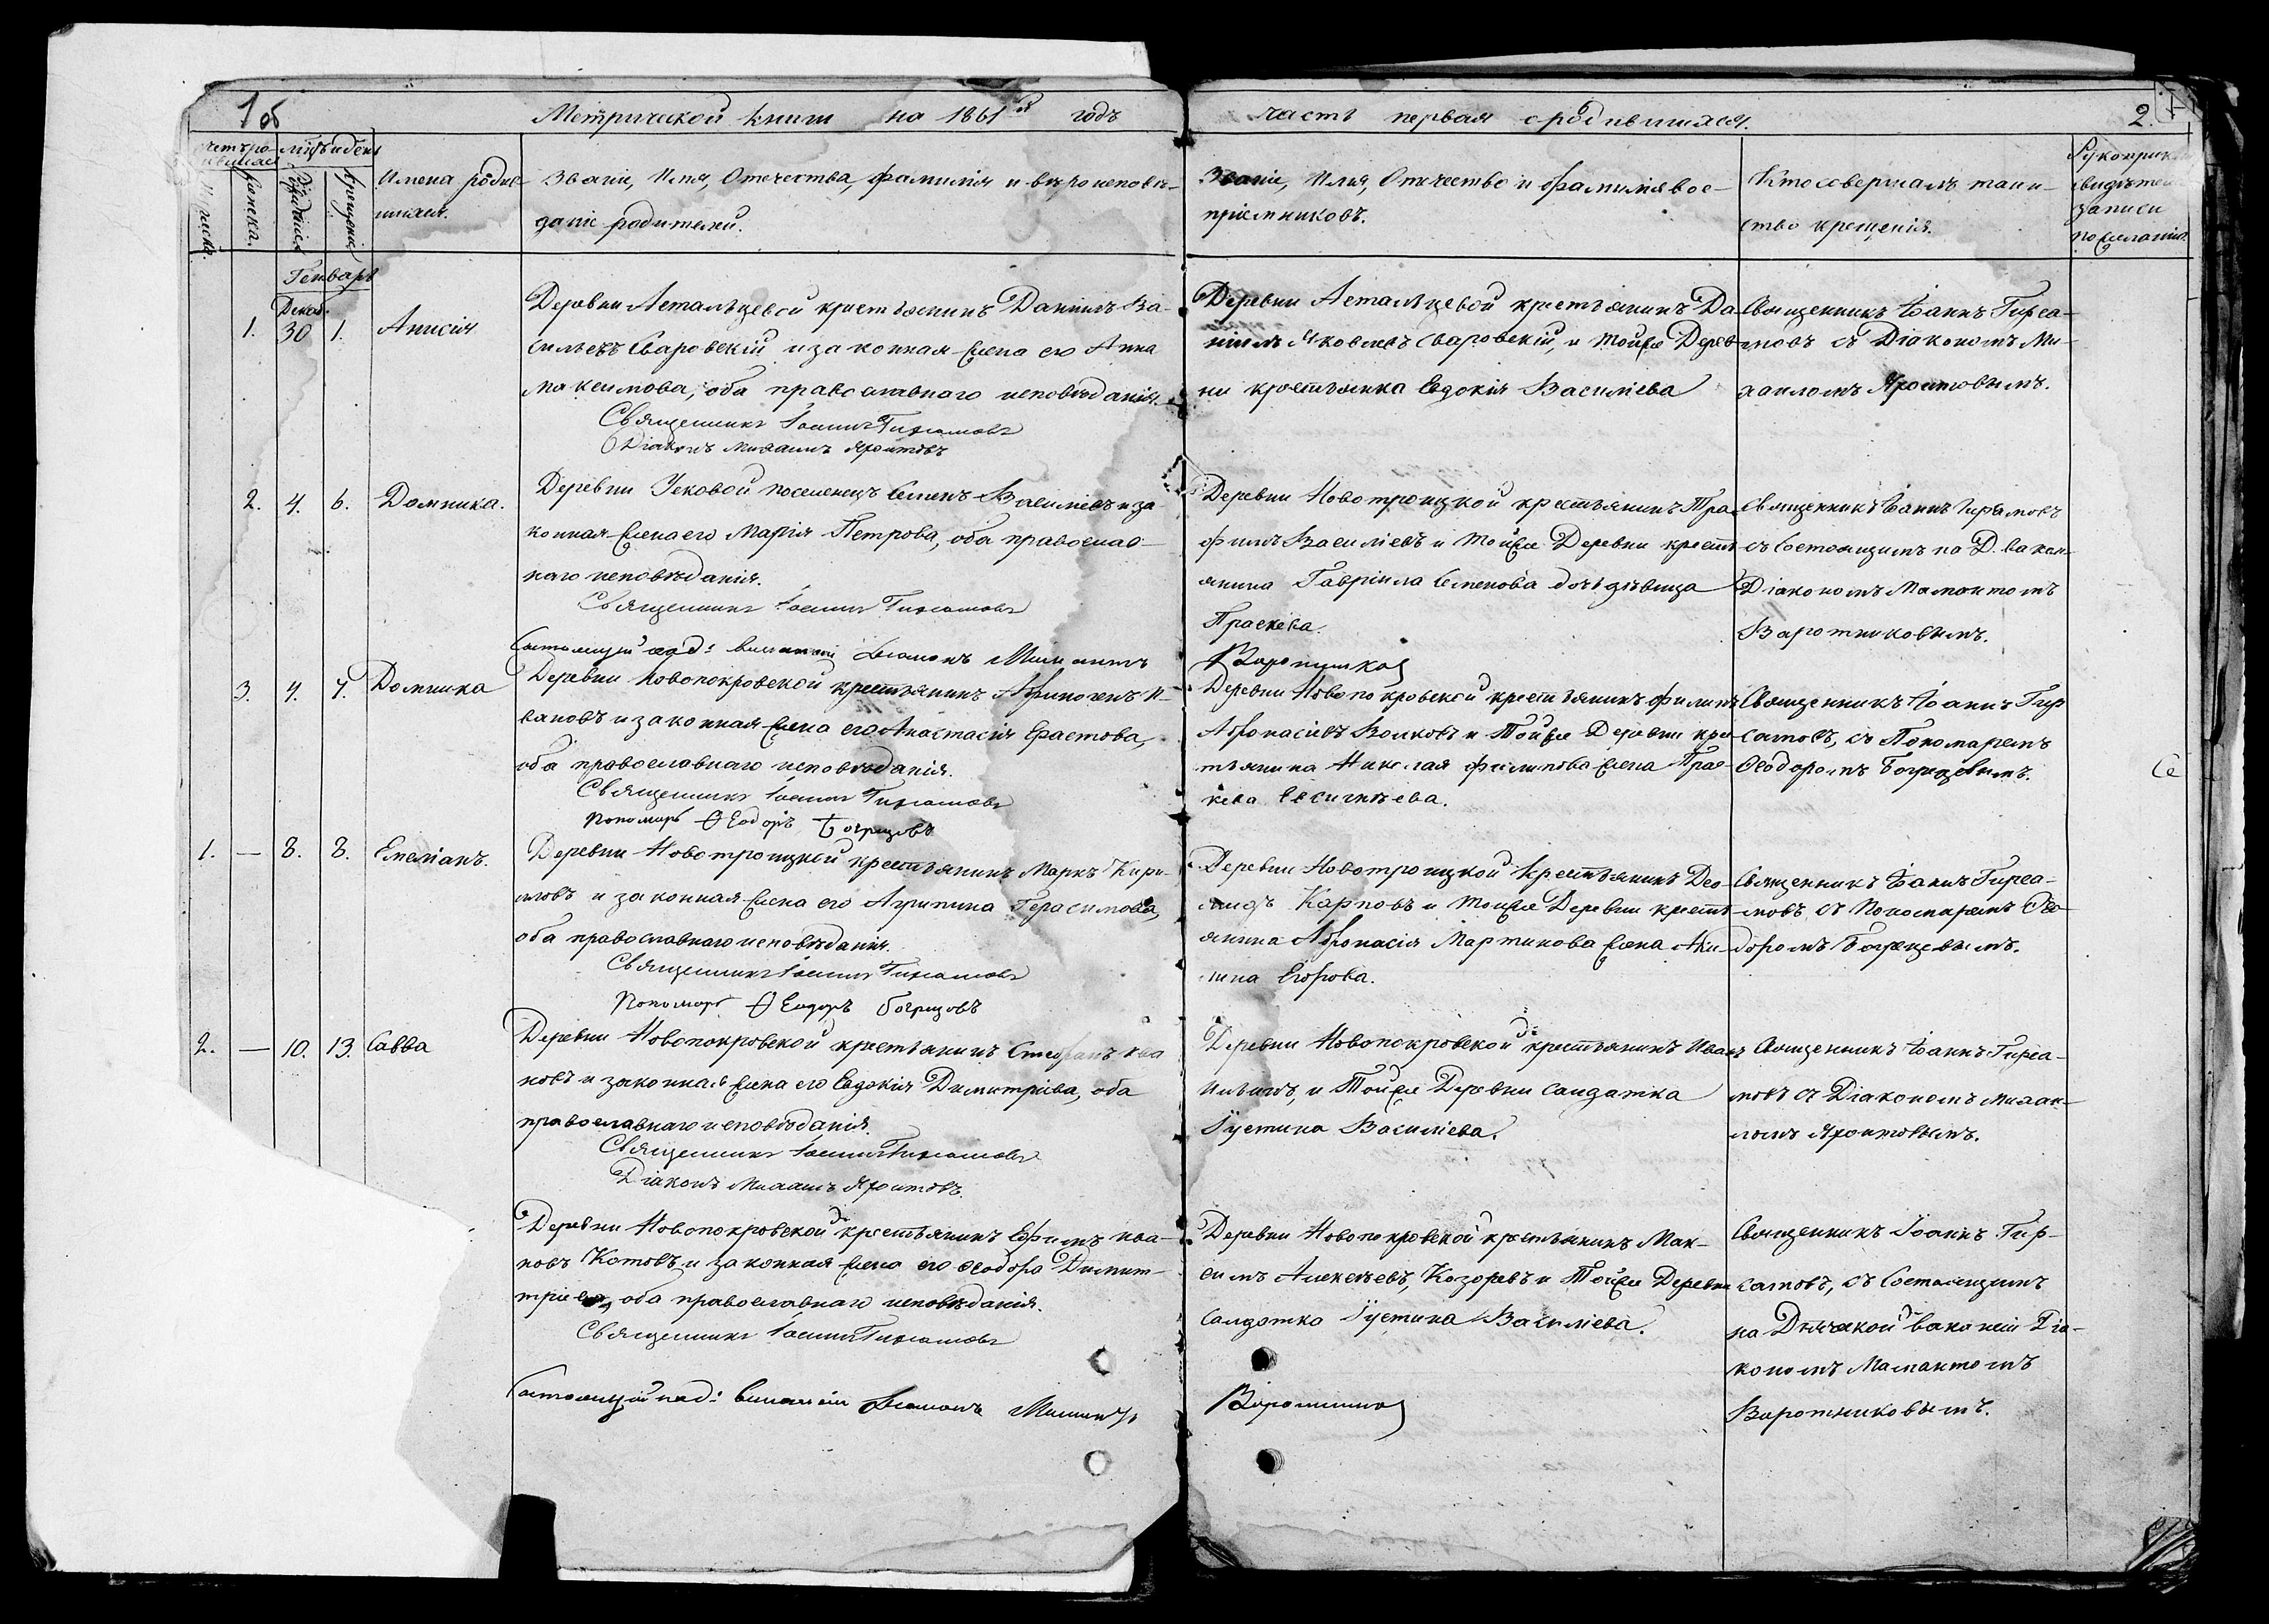 1 об
Метрической книги на 1861й годъ
часть первая о родившихся.
2.
мцъ и день
Имена родив-
шихся.
Званіе, Имя, Отечества, Фамилія и вѣроисповѣ-
даніе родителей.
Званіе, Имя, Отечество и Фамилія вос-
пріемниковъ.
Кто совершалъ таин-
ство крещенія.
свидѣтел
записи
по желанію.
женска.
рожденія
крещенія
Генварь
Декаб.
1.
30
1.
Анисія
Деревни Астальцевой крестьянинъ Даніилъ Ва-
сильевъ Сваровскій и законная жена его Анна
Максимова, оба православнаго исповѣданія.
Священникъ Іоаннъ Гирсамовъ
Діаконъ Михаилъ Яхонтовъ
Деревни Астальцевой крестьянинъ Да-
ніилъ Яковлевъ Сваровскій, и тойже Дерев-
ни крестьянка Евдокія Василіева
Священникъ Іоаннъ Гирса-
мовъ съ Діакономъ Ми-
хаиломъ Яхонтовымъ.
2.
4.
6.
Домника.
Деревни Уековой поселенецъ Семенъ Василіевъ и за-
конная жена его Марія Петрова, оба православ-
наго исповѣданія.
Священникъ Іоаннъ Гирсамовъ
Состоящій Діаконъ Мамантъ
Деревни Новотроицкой крестьянинъ Тра-
фимъ Василіевъ и тойже Деревни крест-
янина Гавріила Семенова дочь дѣвица
Праскева.
Воротников
Священникъ Іоаннъ Гирсамовъ
съ Состоящимъ на Д. вакан-
Діакономъ Мамантомъ
Воротниковымъ.
3.
4.
7.
Домника
Деревни Новопокровской крестьянинъ Афиногенъ И-
вановъ и законная жена его Анастасія Ерастова,
оба православнаго исповѣданія.
Священникъ Іоаннъ Гирсамовъ
Пономарь Ѳеодоръ Богрецовъ
Деревни Новопокровской крестьянинъ Филипъ
Афонасіевъ Волковъ и Тойже Деревни крес-
тьянина Николая Филипова жена Прас-
кева Евсигнѣева.
Священникъ Іоаннъ Гир
самовъ, съ Пономаремъ
Ѳеодоромъ Богрецовымъ.
1.
—
8.
8.
Емеліанъ.
Деревни Новотроицкой крестьянинъ Маркъ Кири-
ловъ и законная жена его Агрипина Герасимова,
оба православнаго исповѣданія.
Священникъ Іоаннъ Гирсамовъ
Пономарь Ѳеодоръ Богрецовъ
Деревни Новотроицкой Крестьянинъ Део-
мидъ Карповъ и тойже Деревни крест-
янина Афонасія Мартинова жена Аку-
лина Егорова.
Священникъ Іоаннъ Гирса-
мовъ съ Пономаремъ Ѳео-
доромъ Богрецовымъ.
2.
—
10.
13.
Савва
Деревни Новопокровской крестьянинъ Стефанъ Ива
новъ и законная жена его Евдокія Димитріева, оба
православнаго исповѣданія.
Священникъ Іоаннъ Гирсамовъ
Діаконъ Михаилъ Яхонтовъ.
Деревни Новопокровской крестьянинъ Иванъ
Ильинъ, и Тойже Деревни салдатка
Іустина Василіева.
Священникъ Іоаннъ Гирса-
мовъ съ Діакономъ Михаи-
ломъ Яхонтовымъ.
Деревни Новопокровской крестьянинъ Ефимъ Ива-
новъ Котовъ и законная жена его Ѳеодора Димит-
ріева, оба православнаго исповѣданія.
Священникъ Іоаннъ Гирсамовъ
Состоящій Діаконъ Мамантъ
Деревни Новопокровской крестьянинъ Мак-
симъ Алексѣевъ, Козоревъ и Тойже Деревни
Салдатка Іустина Василіева.
Воротников
Священникъ Іоаннъ Гир-
самовъ, съ Состоящимъ
на Дьяческой ваканціи Діа-
кономъ Мамантомъ
Воротниковымъ.